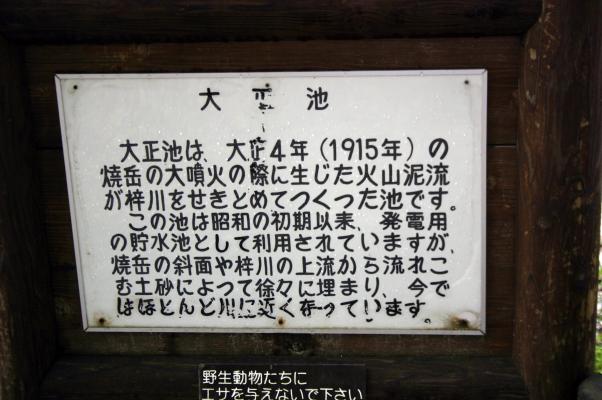 大正池
大正池は、大正4年（1915年）の
焼岳の大噴火の際に生じた火山泥流
が梓川をせきとめてつくった池です。
この池は昭和の初期以来、発電用
の貯水池として利用されていますが、
焼岳の斜面や梓川の上流から流れこ
む土砂によって徐々に埋まり、今で
はほとんど川に近くなっています。
野生動物たちに
エサを与えないで下さい